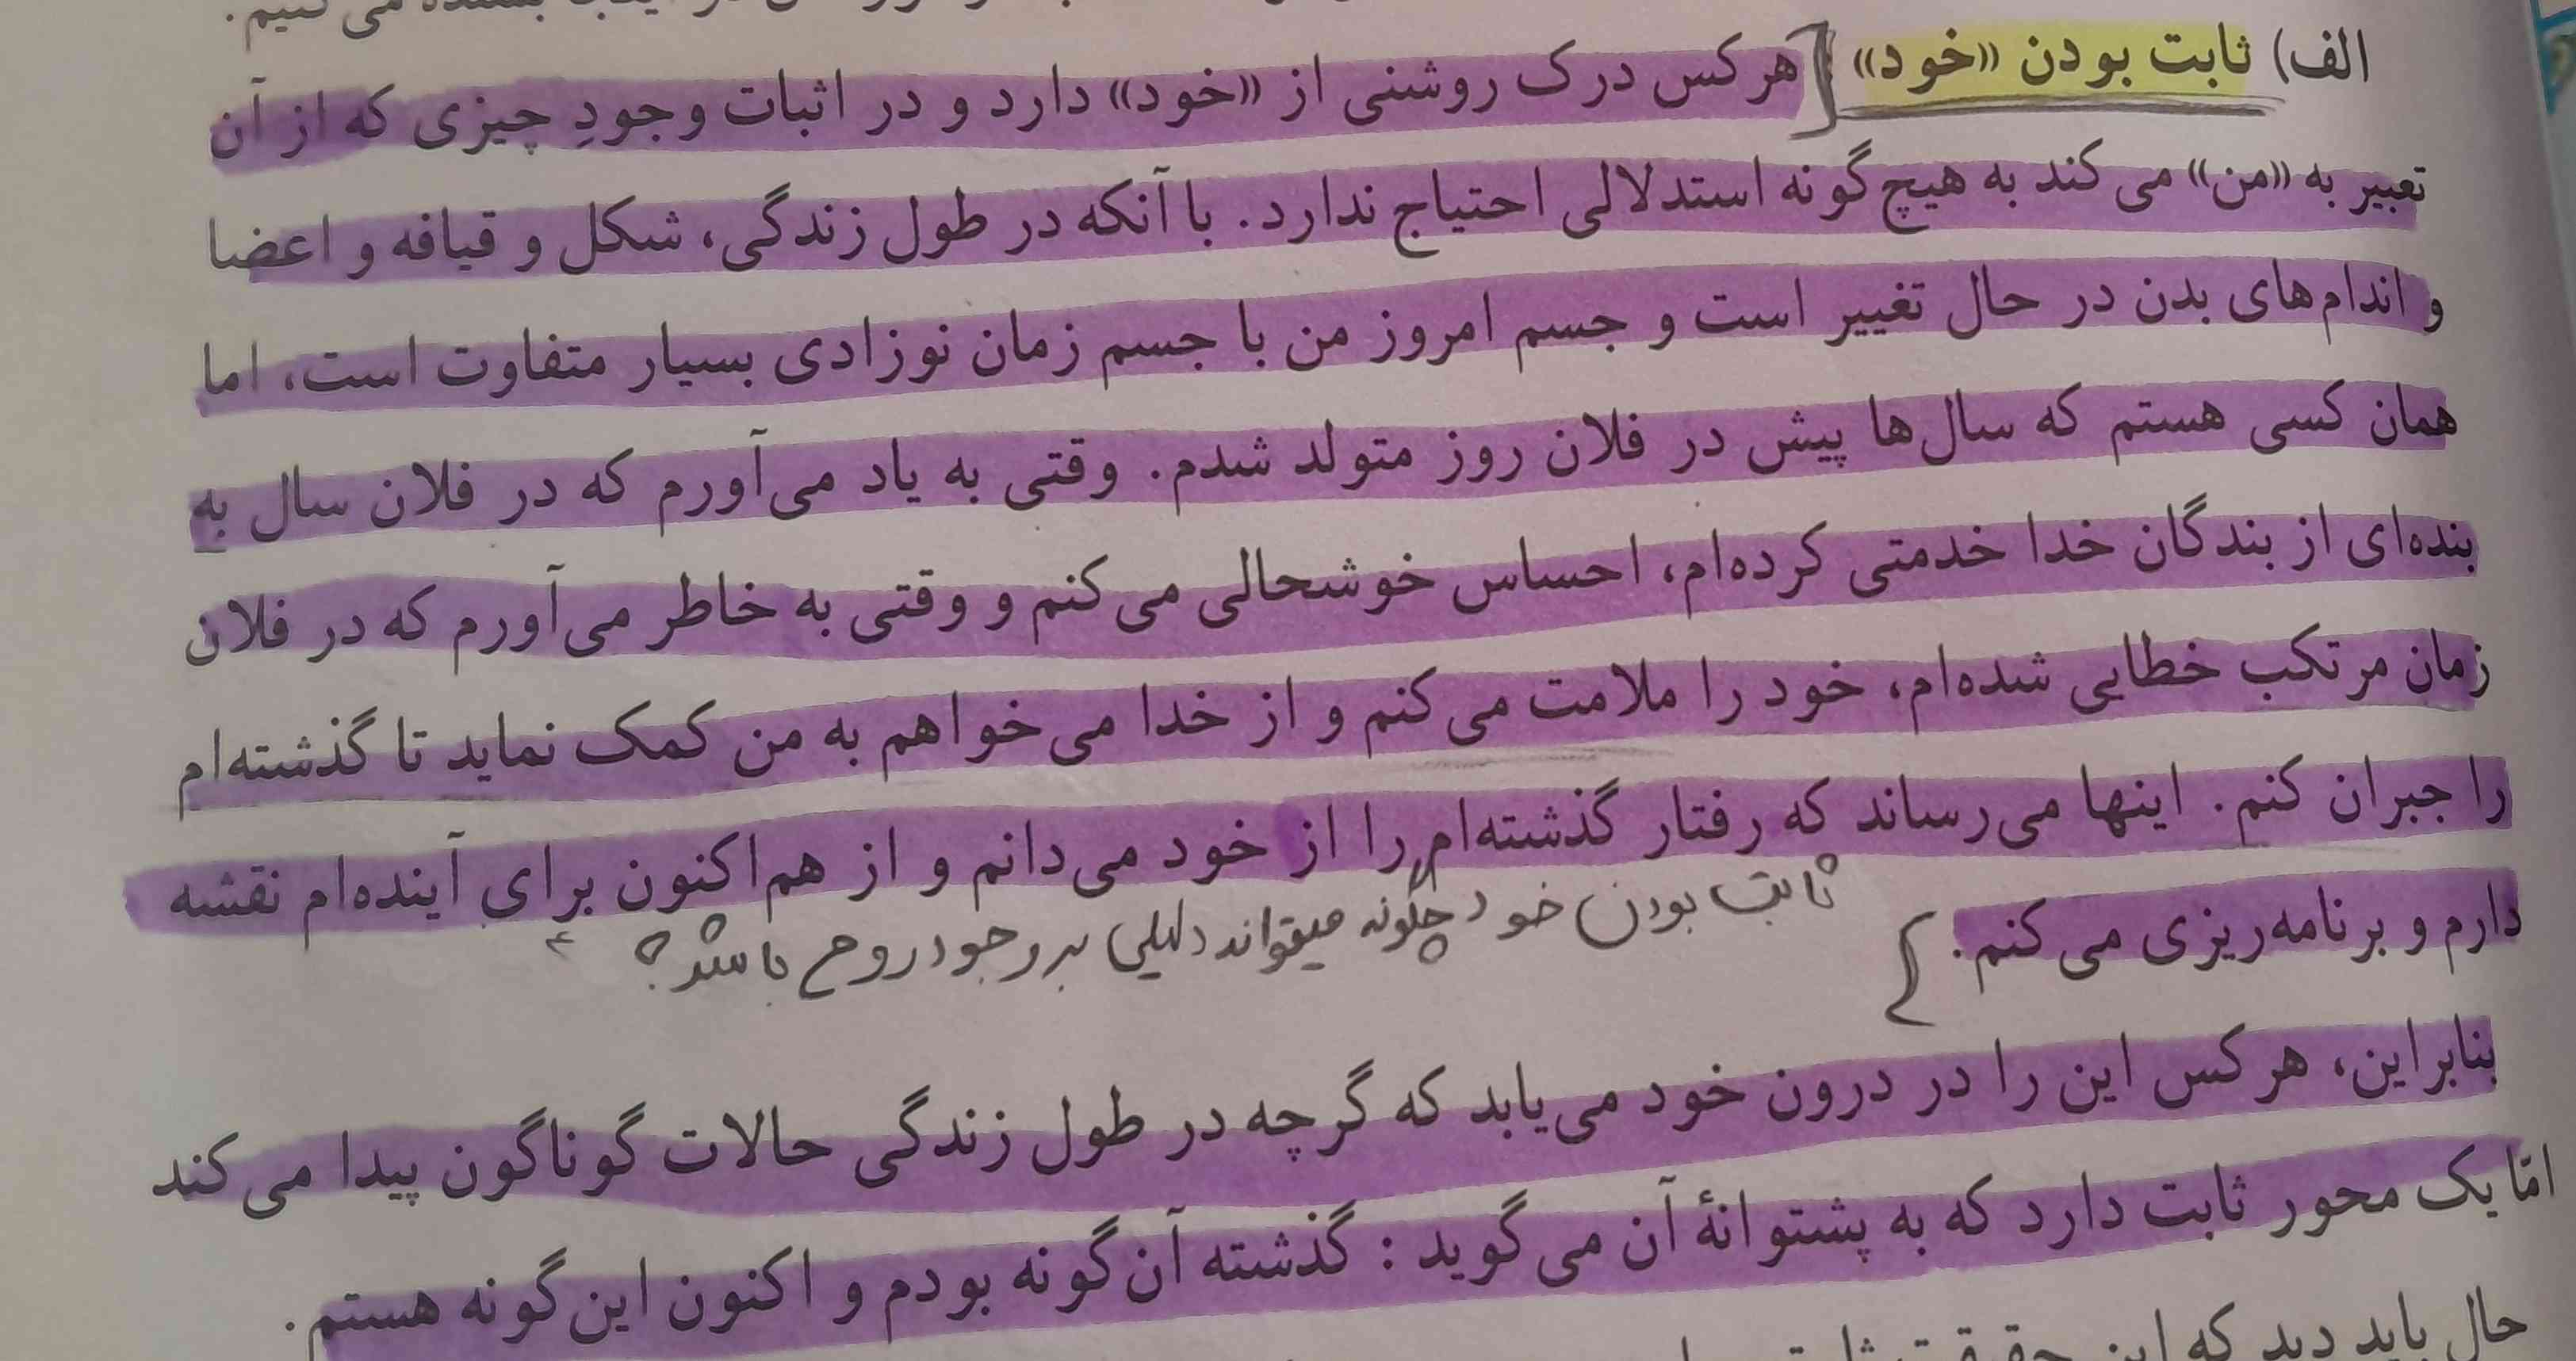 الف) ثابت بودن «خود» هر کس درک روشنی از «خود» دارد و در اثبات وجودِ چیزی که از آن
تعبیر به «من» می‌کند به هیچ‌گونه استدلالی احتیاج ندارد. با آنکه در طول زندگی، شکل و قیافه و اعضا
و اندام‌های بدن در حال تغییر است و جسم امروز من با جسم زمان نوزادی بسیار متفاوت است، اما
همان کسی هستم که سال‌ها پیش در فلان روز متولد شدم. وقتی به یاد می‌آورم که در فلان سال به
بنده‌ای از بندگان خدا خدمتی کرده‌ام، احساس خوشحالی می‌کنم و وقتی به خاطر می‌آورم که در فلان
زمان مرتکب خطایی شده‌ام، خود را ملامت می‌کنم و از خدا می‌خواهم به من کمک نماید تا گذشته‌ام
را جبران کنم. اینها می‌رساند که رفتار گذشته‌ام را از خود می‌دانم و از هم‌اکنون برای آینده‌ام نقشه
دارم و برنامه‌ریزی می‌کنم.
ثابت بودن خود چگونه میتواند دلیلی بر وجود روح باشد؟
بنابراین، هر کس این را در درون خود می‌یابد که گرچه در طول زندگی حالات گوناگون پیدا می‌کند
امّا یک محور ثابت دارد که به پشتوانهٔ آن می‌گوید : گذشته آن‌گونه بودم و اکنون این‌گونه هستم.
حال باید دید که این